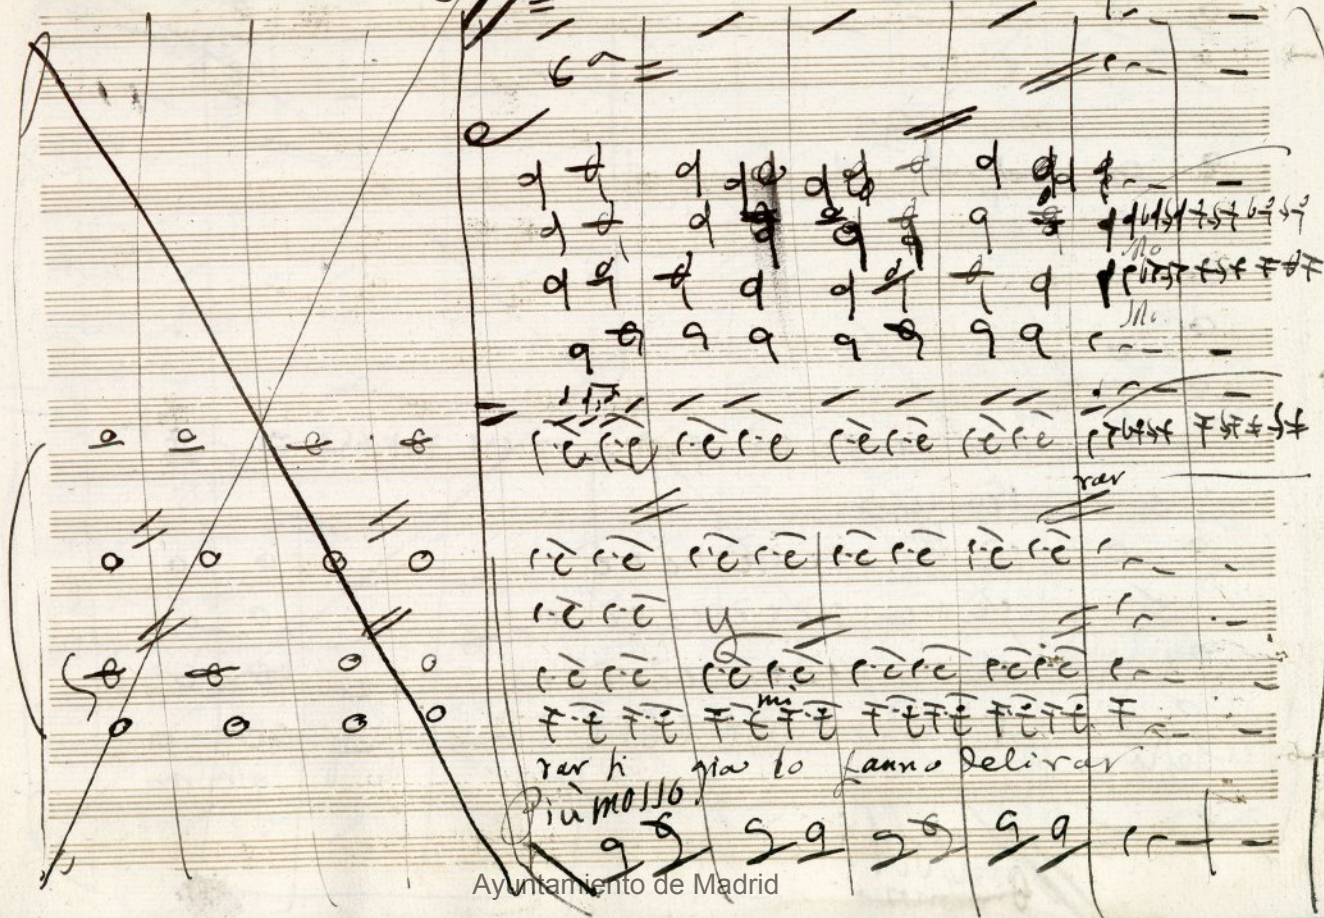 6ª
rar
mi
rar li già lo fanno delirar
Più mosso
Ayuntamiento de Madrid